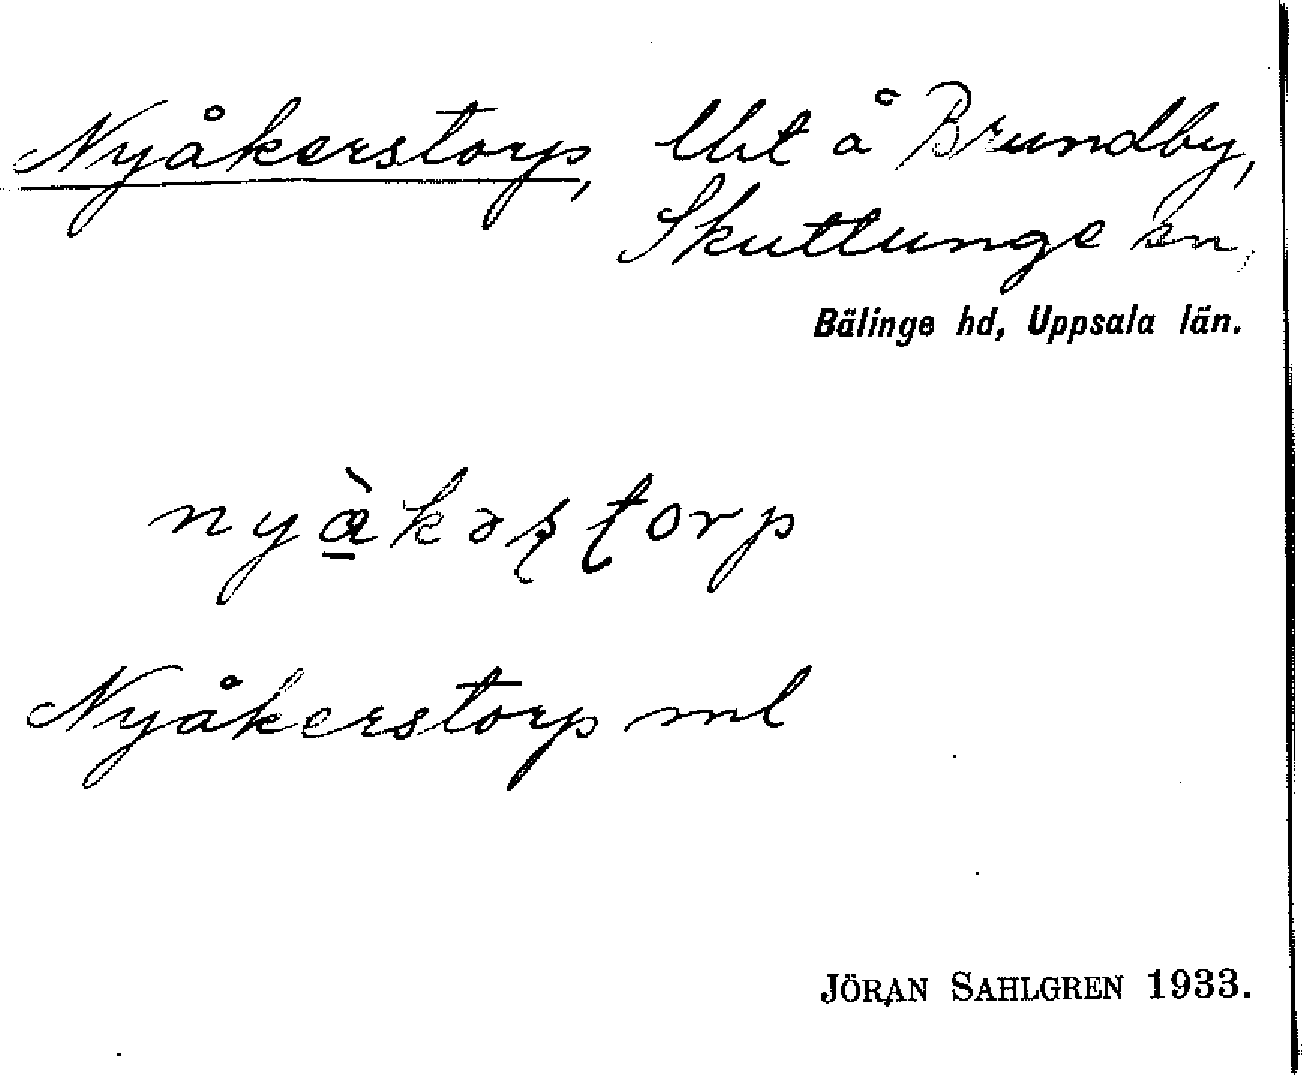 Nyåkerstorp, lht å Brundby,
Skuttunge sn,
Bälinge hd, Uppsala län.
Nyåkerstorp
JÖRAN SAHLGREN 1933.